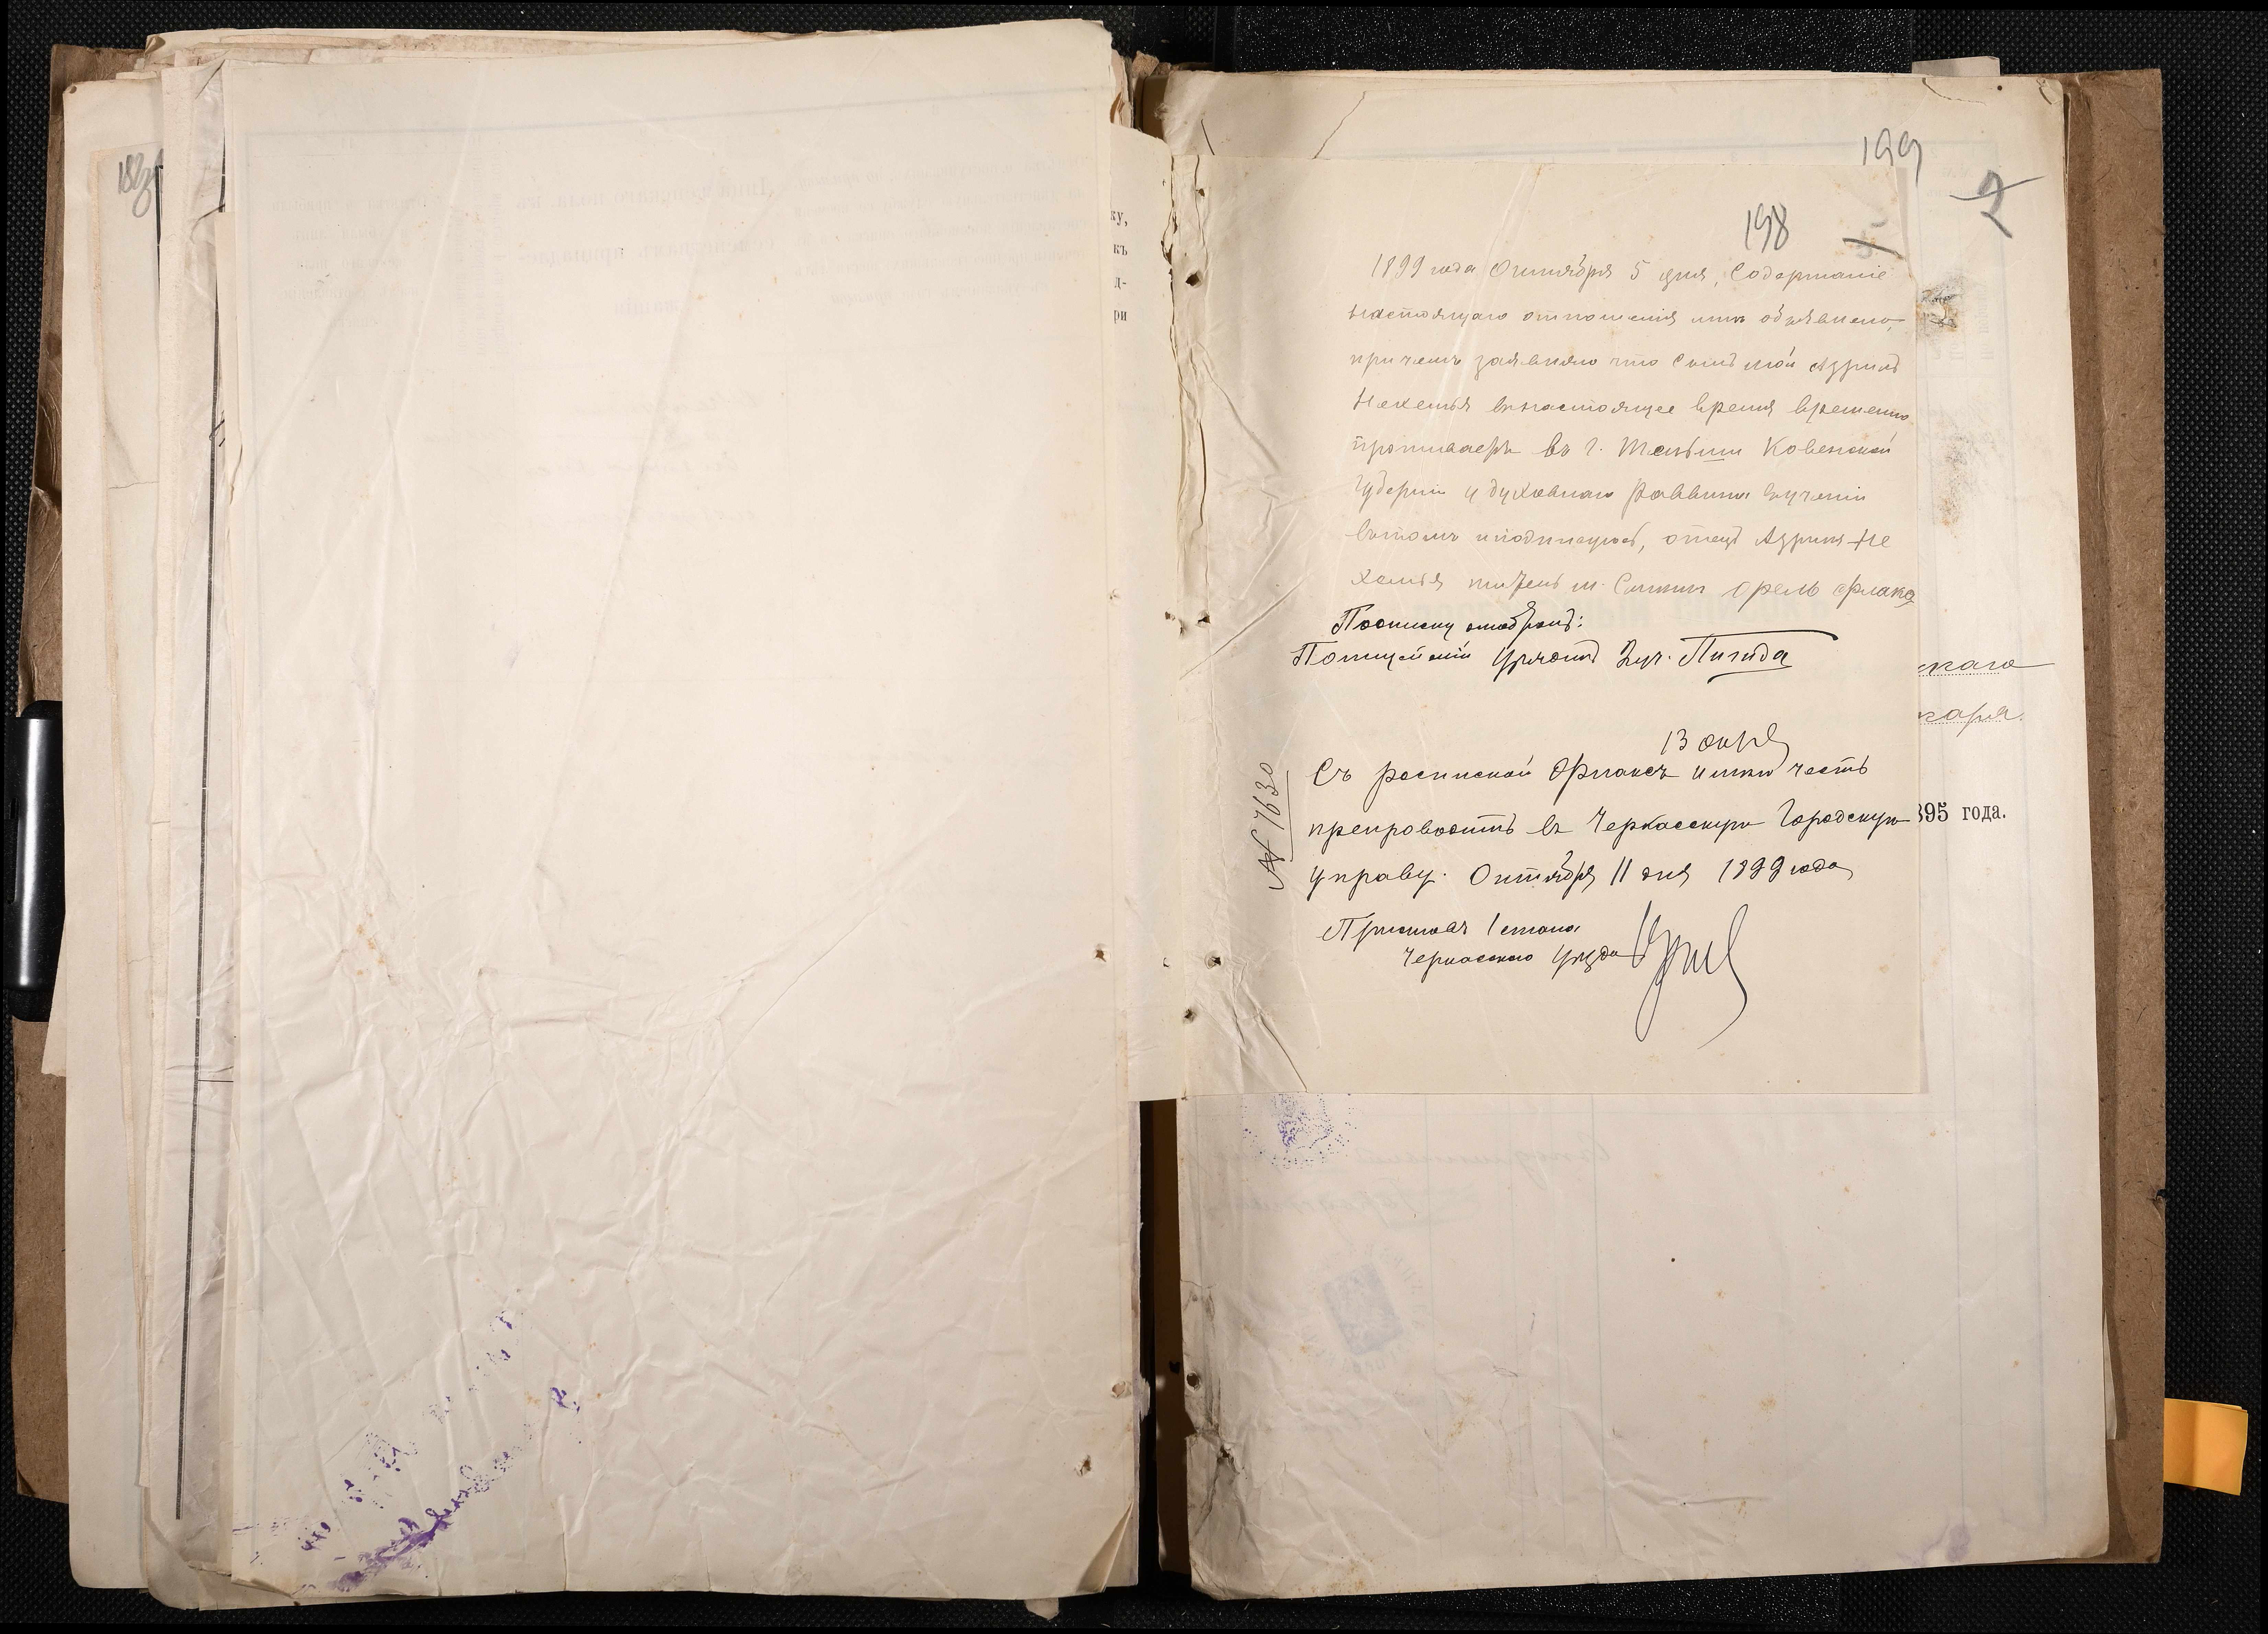 199
198
1899 года Октября 5 дня, Содержаніе
настоящаго отношенія мнѣ объявлено,
при чемъ заявляю что Сынъ мой Азрилъ
Нехемья внастоящее время временно
проживаетъ въ г. Тельши Ковенской
Губерніи у духовнаго Раввина
вътомъ иподписуюсь, отецъ Азрилъ Не
хемья м. Смилы Орель Флакс
Подписку отобралъ:
Полицейскій Урядникъ Пигида
13 окт
Съ роспиской Флаксъ имѣю честь
препроводить въ Черкасскую Городскую
Управу. Октября 11 дня 1899 года
№ 7630
Приставъ 1 стана
Черкасскаго Уѣзда
скаго
каря.
895 года.
ку,
къ
д-
ри